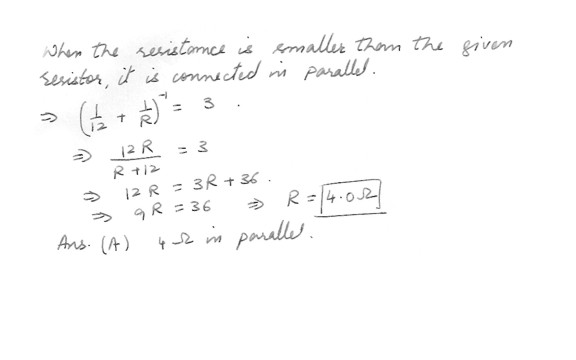 When the resistance is smaller than the given
resistor, it is connected in parallel.
⇒ (1/12 + 1/R)⁻¹ = 3 .
⇒ 12R / R+12 = 3
⇒ 12R = 3R + 36 .
⇒ 9R = 36 ⇒ R = 4.0Ω
Ans. (A) 4 Ω in parallel.